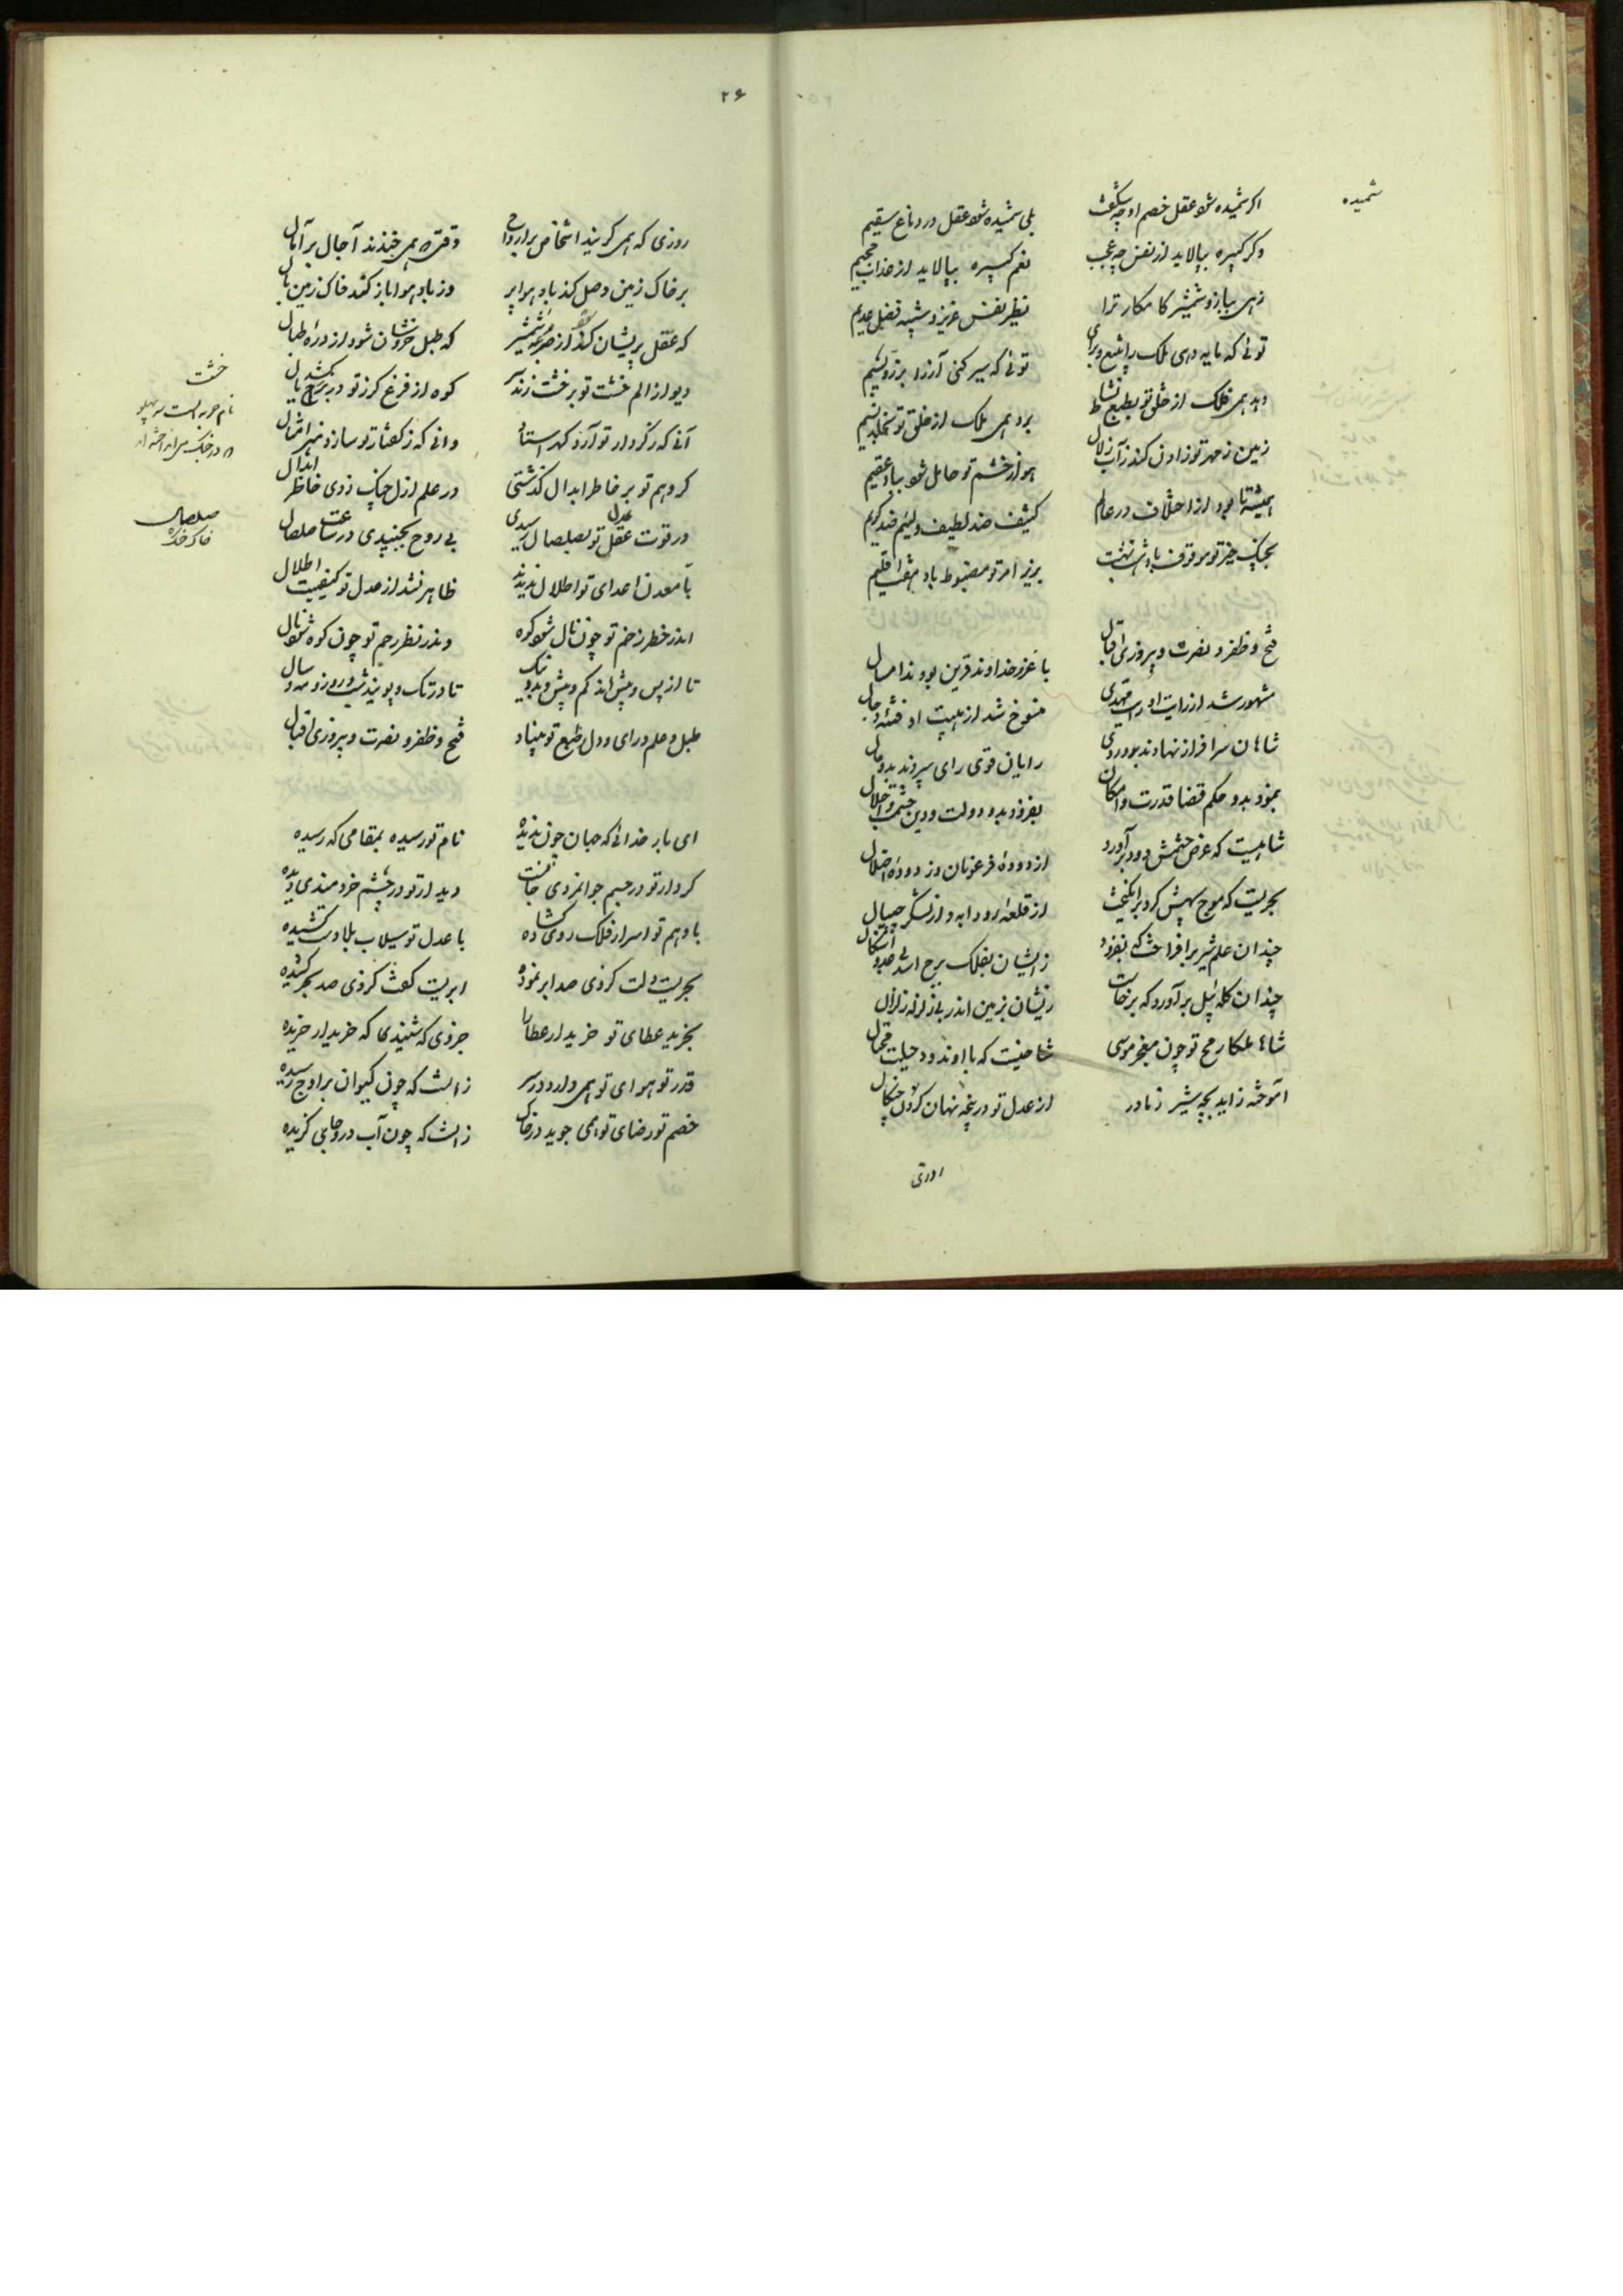 شمیده
اکر شمیده شود عقل خصم او چه شکفت
بلی شمیده شود عقل در دماغ سقیم
وکر کبیره بپالاید از نفس چه عجب
نعم کبیره بپالاید از عذاب جحیم
زهی ببازو شمشیر کامکار ترا
نظیر نفس عزیز و شبیه فضل عدیم
توئی که مایه دهی ملک را بتیغ و برای
توئی که سیر کنی آز را بزر و بسیم
دهد همی فلک از خلق تو بطبع نشاط
برد همی ملک از خلق تو بخلد نسیم
زمین ز مهر تو زادن کند ز آب زلال
هوا ز خشم تو حامل شود بباد عقیم
همیشه تا بود از اختلاف در عالم
کثیف ضد لطیف و لئیم ضد کریم
بجنک خیر تو موقوف باد هشت بهشت
بزیر امر تو مضبوط باد هفت اقلیم
فتح و ظفر و نصرت و پیروزی اقبال
با عز خداوند قرین بودند امسال
مشهور شد از رایت او رایت مهدی
منسوخ شد از هیبت او فتنه دجال
شاهان سرافراز نهادند بدو روی
رایان قوی رای سپردند بدو مال
بنمود بدو حکم قضا قدرت و امکان
بفزود بدو دولت و دین حشمت و اجلال
شاهیست که عرض حشمش دود برآورد
از دوده فرعونان وز دوده اضلال
بحریست که موج سپهش کرد برانکیخت
از قلعه و از لشکر چیپال
چندان علم شیر برافراخت که بفزود
زایشان بفلک برج اسد بی حد و اشکال
چندان کله پیل برآورد که برخاست
زیشان بزمین اندر بی زلزله زلزال
شاها ملکا رمح تو چون معجز موسی
شاخیست که با او نرود حیلت محتال
آموخته زاید بچه شیر ز مادر
از عدل تو در پنجه نهان کردن چنکال
روزی
۲۶
روزی که همی کریند اشخاص بر ارواح
وقتی که همی خندند آجال بر آمال
بر خاک زمین وصل کند باد هوا پر
وز باد هوا باز کند خاک زمین بال
که عقل پریشان کند از عربده شمشیر
که طبل خروشان شود از دره طبال
دیو از الم خشت تو بر خشت زند سر
کوه از فزع کرز تو در برج کشد یال
آنی که ز کردار تو آرد کهر استاد
وانی که ز کفتار تو سازد نبی امثال
کر وهم تو بر خاطر ابدال کذشتی
در علم ازل چنک زدی خاطر ابدال
ور قوت عدل تو بصلصال رسیدی
بی روح بجنبیدی در ساعت صلصال
تا معدن اعدای تو اطلال ندیدند
ظاهر نشد از عدل تو کیفیت اطلال
اندر خطر زخم تو چون نال شود کوه
وندر نظر رحم تو چون کوه شود نال
تا از پس و پیش اند کم و بیش و بد و نیک
تا در تک و پویند شب و روز و مه و سال
طبل و علم و رای و دل و طبع تو میناد
فتح و ظفر و نصرت و پیروزی اقبال
ای بار خدائی که جهان چون تو ندیده
نام تو رسیده بمقامی که رسیده
کردار تو در جسم جوانمردی جانست
دیدار تو در چشم خردمندی دیده
با وهم تو اسرار فلک روی کشاده
با عدل تو سیلاب بلا دست کشیده
بحریست دلت کز وی صد ابر نموده
ابریست کفت کز وی صد بحر کشیده
بخرید عطای تو خریدار عطا را
جز وی که شنیدی که خریدار خریده
قدر تو هوای تو همی دارد در سر
زانست که چون کیوان بر اوج رسیده
خصم تو رضای تو همی جوید در خاک
زانست که چون آب در و جای کزیده
خشت
صلصال